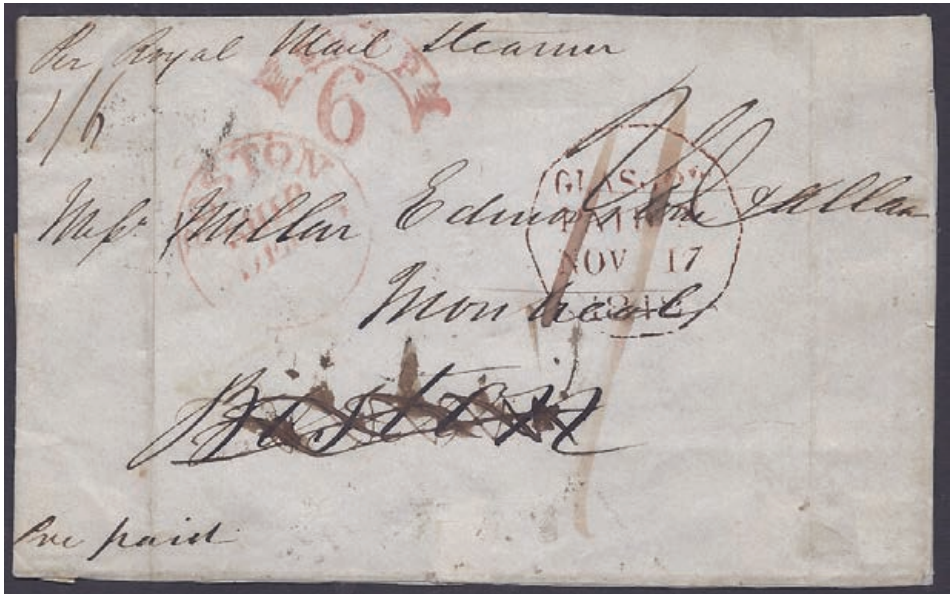 Per Royal Mail Steamer
1/6
6
BOSTON
SHIP
GLASGOW
PAID
NOV 17
Messrs Millar Edmonstone & Allan
Montreal
Boston
Pre paid